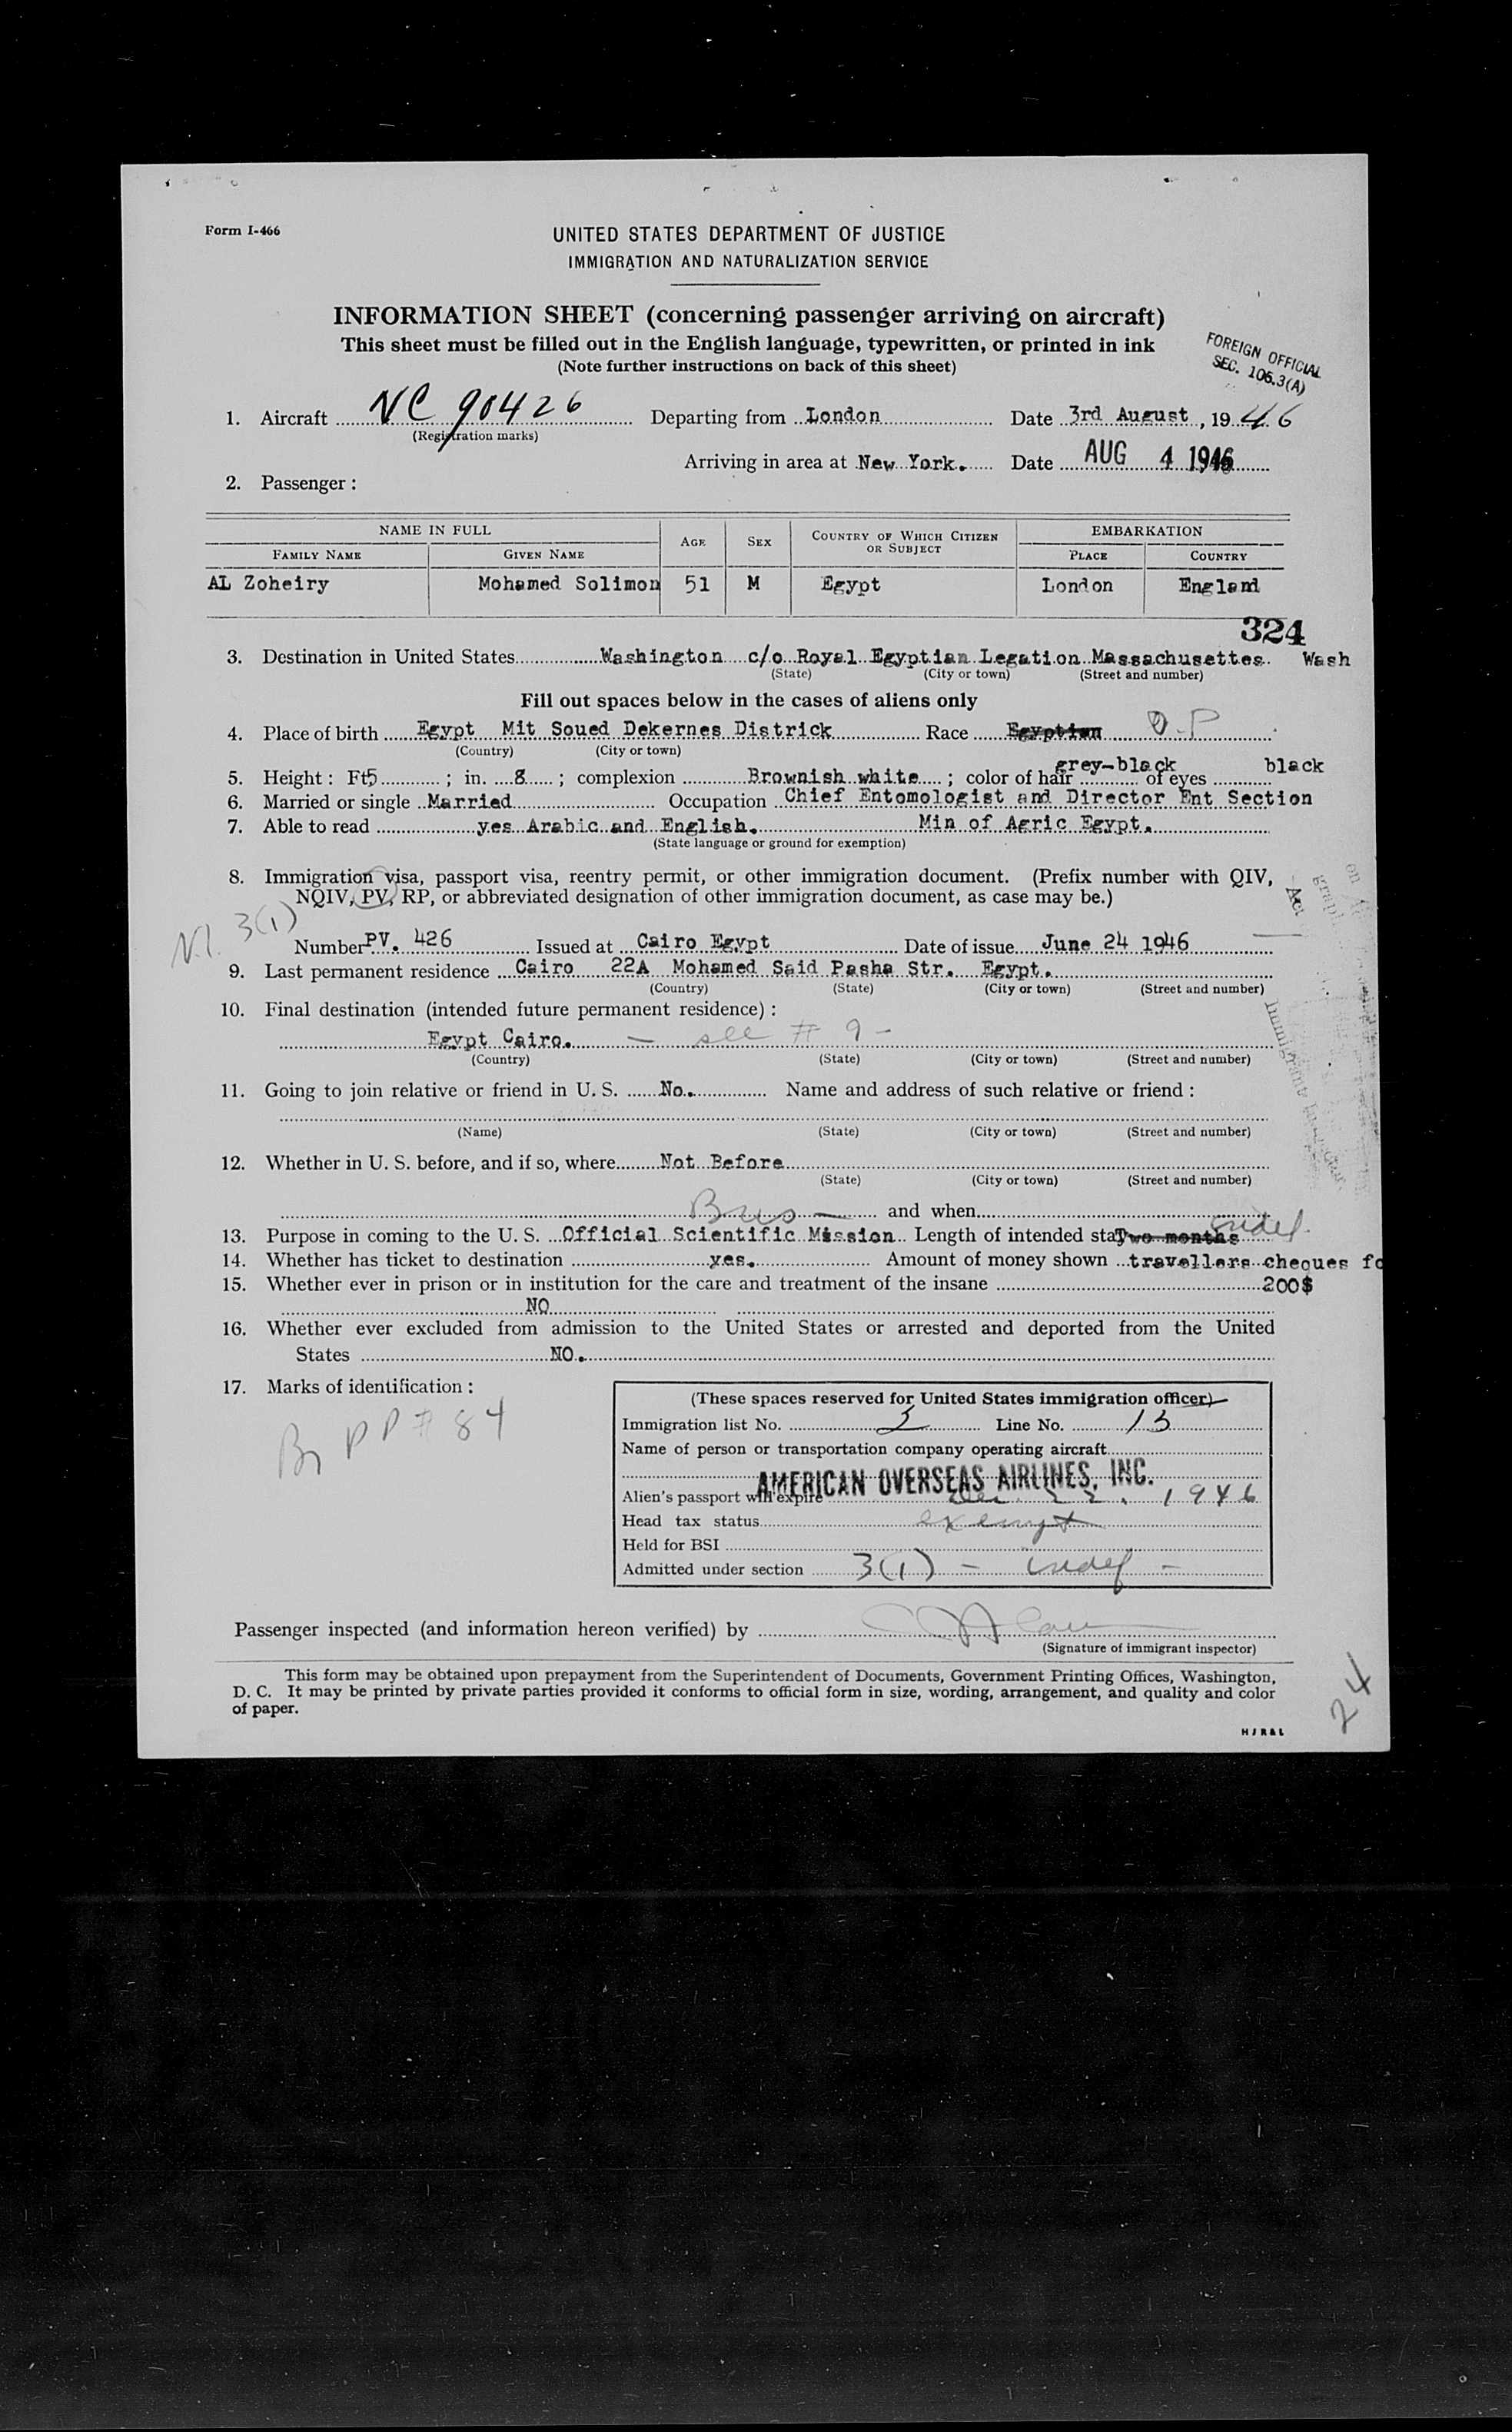 Form I-466
UNITED STATES DEPARTMENT OF JUSTICE
IMMIGRATION AND NATURALIZATION SERVICE
INFORMATION SHEET (concerning passenger arriving on aircraft)
This sheet must be filled out in the English language, typewritten, or printed in ink
(Note further instructions on back of this sheet)
FOREIGN OFFICIAL
SEC. 106.3(A)
1. Aircraft NC 90426 Departing from London Date 3rd August, 1946
(Registration marks)
Arriving in area at New York. Date AUG 4 1946
2. Passenger:
NAME IN FULL AGE SEX COUNTRY OF WHICH CITIZEN OR SUBJECT EMBARKATION
FAMILY NAME GIVEN NAME PLACE COUNTRY
AL Zoheiry Mohamed Solimon 51 M Egypt London England
324
3. Destination in United States Washington c/o Royal Egyptian Legation Massachusettes Wash
(State) (City or town) (Street and number)
Fill out spaces below in the cases of aliens only
4. Place of birth Egypt Mit Soued Dekernes Districk Race Egyptian O.P
(Country) (City or town)
5. Height: Ft 5; in. 8; complexion Brownish white; color of hair grey-black of eyes black
6. Married or single Married Occupation Chief Entomologist and Director Ent Section
7. Able to read yes Arabic and English. Min of Agric Egypt.
(State language or ground for exemption)
8. Immigration visa, passport visa, reentry permit, or other immigration document. (Prefix number with QIV,
NQIV, PV, RP, or abbreviated designation of other immigration document, as case may be.)
N.I. 3(1)
Number PV. 426 Issued at Cairo Egypt Date of issue June 24 1946
9. Last permanent residence Cairo 22A Mohamed Said Pasha Str. Egypt.
(Country) (State) (City or town) (Street and number)
10. Final destination (intended future permanent residence):
Egypt Cairo. - see # 9 -
(Country) (State) (City or town) (Street and number)
11. Going to join relative or friend in U. S. No. Name and address of such relative or friend:
(Name) (State) (City or town) (Street and number)
12. Whether in U. S. before, and if so, where Not Before
(State) (City or town) (Street and number)
Bus - and when
13. Purpose in coming to the U. S. Official Scientific Mission Length of intended stay Two months indef.
14. Whether has ticket to destination yes. Amount of money shown travellers cheques fo
15. Whether ever in prison or in institution for the care and treatment of the insane 200$
NO
16. Whether ever excluded from admission to the United States or arrested and deported from the United
States NO.
17. Marks of identification:
PP # 84
(These spaces reserved for United States immigration officer)
Immigration list No. 3 Line No. 13
Name of person or transportation company operating aircraft
AMERICAN OVERSEAS AIRLINES, INC.
Alien's passport will expire Dec. 22, 1946
Head tax status exempt
Held for BSI
Admitted under section 3(1) - indef -
Passenger inspected (and information hereon verified) by
(Signature of immigrant inspector)
This form may be obtained upon prepayment from the Superintendent of Documents, Government Printing Offices, Washington,
D. C. It may be printed by private parties provided it conforms to official form in size, wording, arrangement, and quality and color
of paper.
HJR&L
24